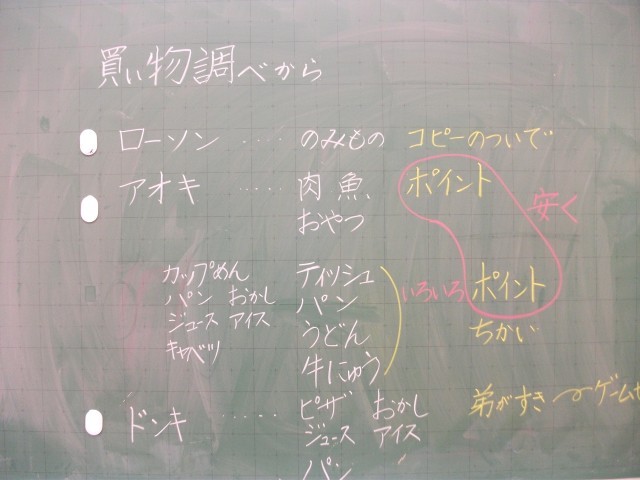 買い物調べから
ローソン ····· のみもの コピーのついで
アオキ ····· 肉 魚 ポイント 安く
おやつ
カップめん ティッシュ
パン おかし パン いろいろ ポイント
ジュース アイス うどん ちかい
キャベツ 牛にゅう
ドンキ ····· ピザ おかし 弟がすき ゲーム
ジュース アイス
パン